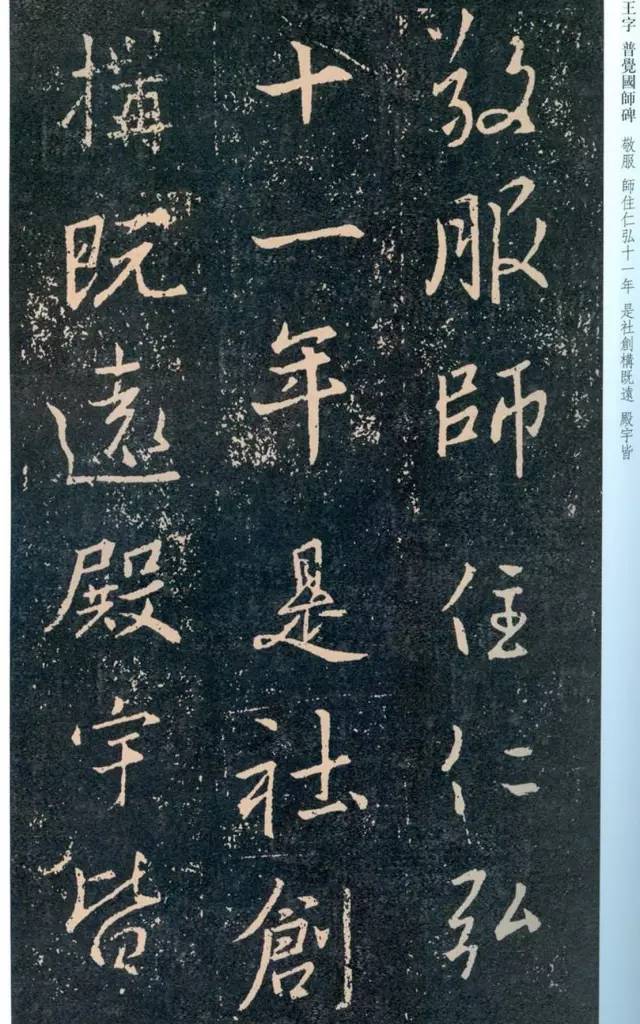 王字 普覺國師碑 敬服 師住仁弘十一年 是社創構既遠 殿宇皆
敬服師住仁弘
十一年是社創
構既遠殿宇皆